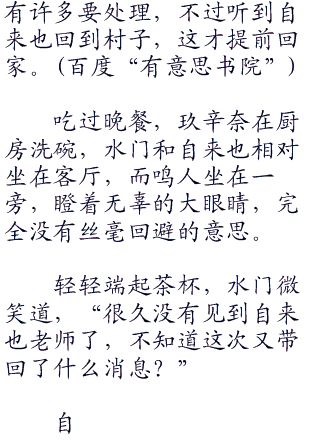 有许多要处理，不过听到自
来也回到村子，这才提前回
家。(百度“有意思书院”)
吃过晚餐，玖辛奈在厨
房洗碗，水门和自来也相对
坐在客厅，而鸣人坐在一
旁，瞪着无辜的大眼睛，完
全没有丝毫回避的意思。
轻轻端起茶杯，水门微
笑道，“很久没有见到自来
也老师了，不知道这次又带
回了什么消息？”
自